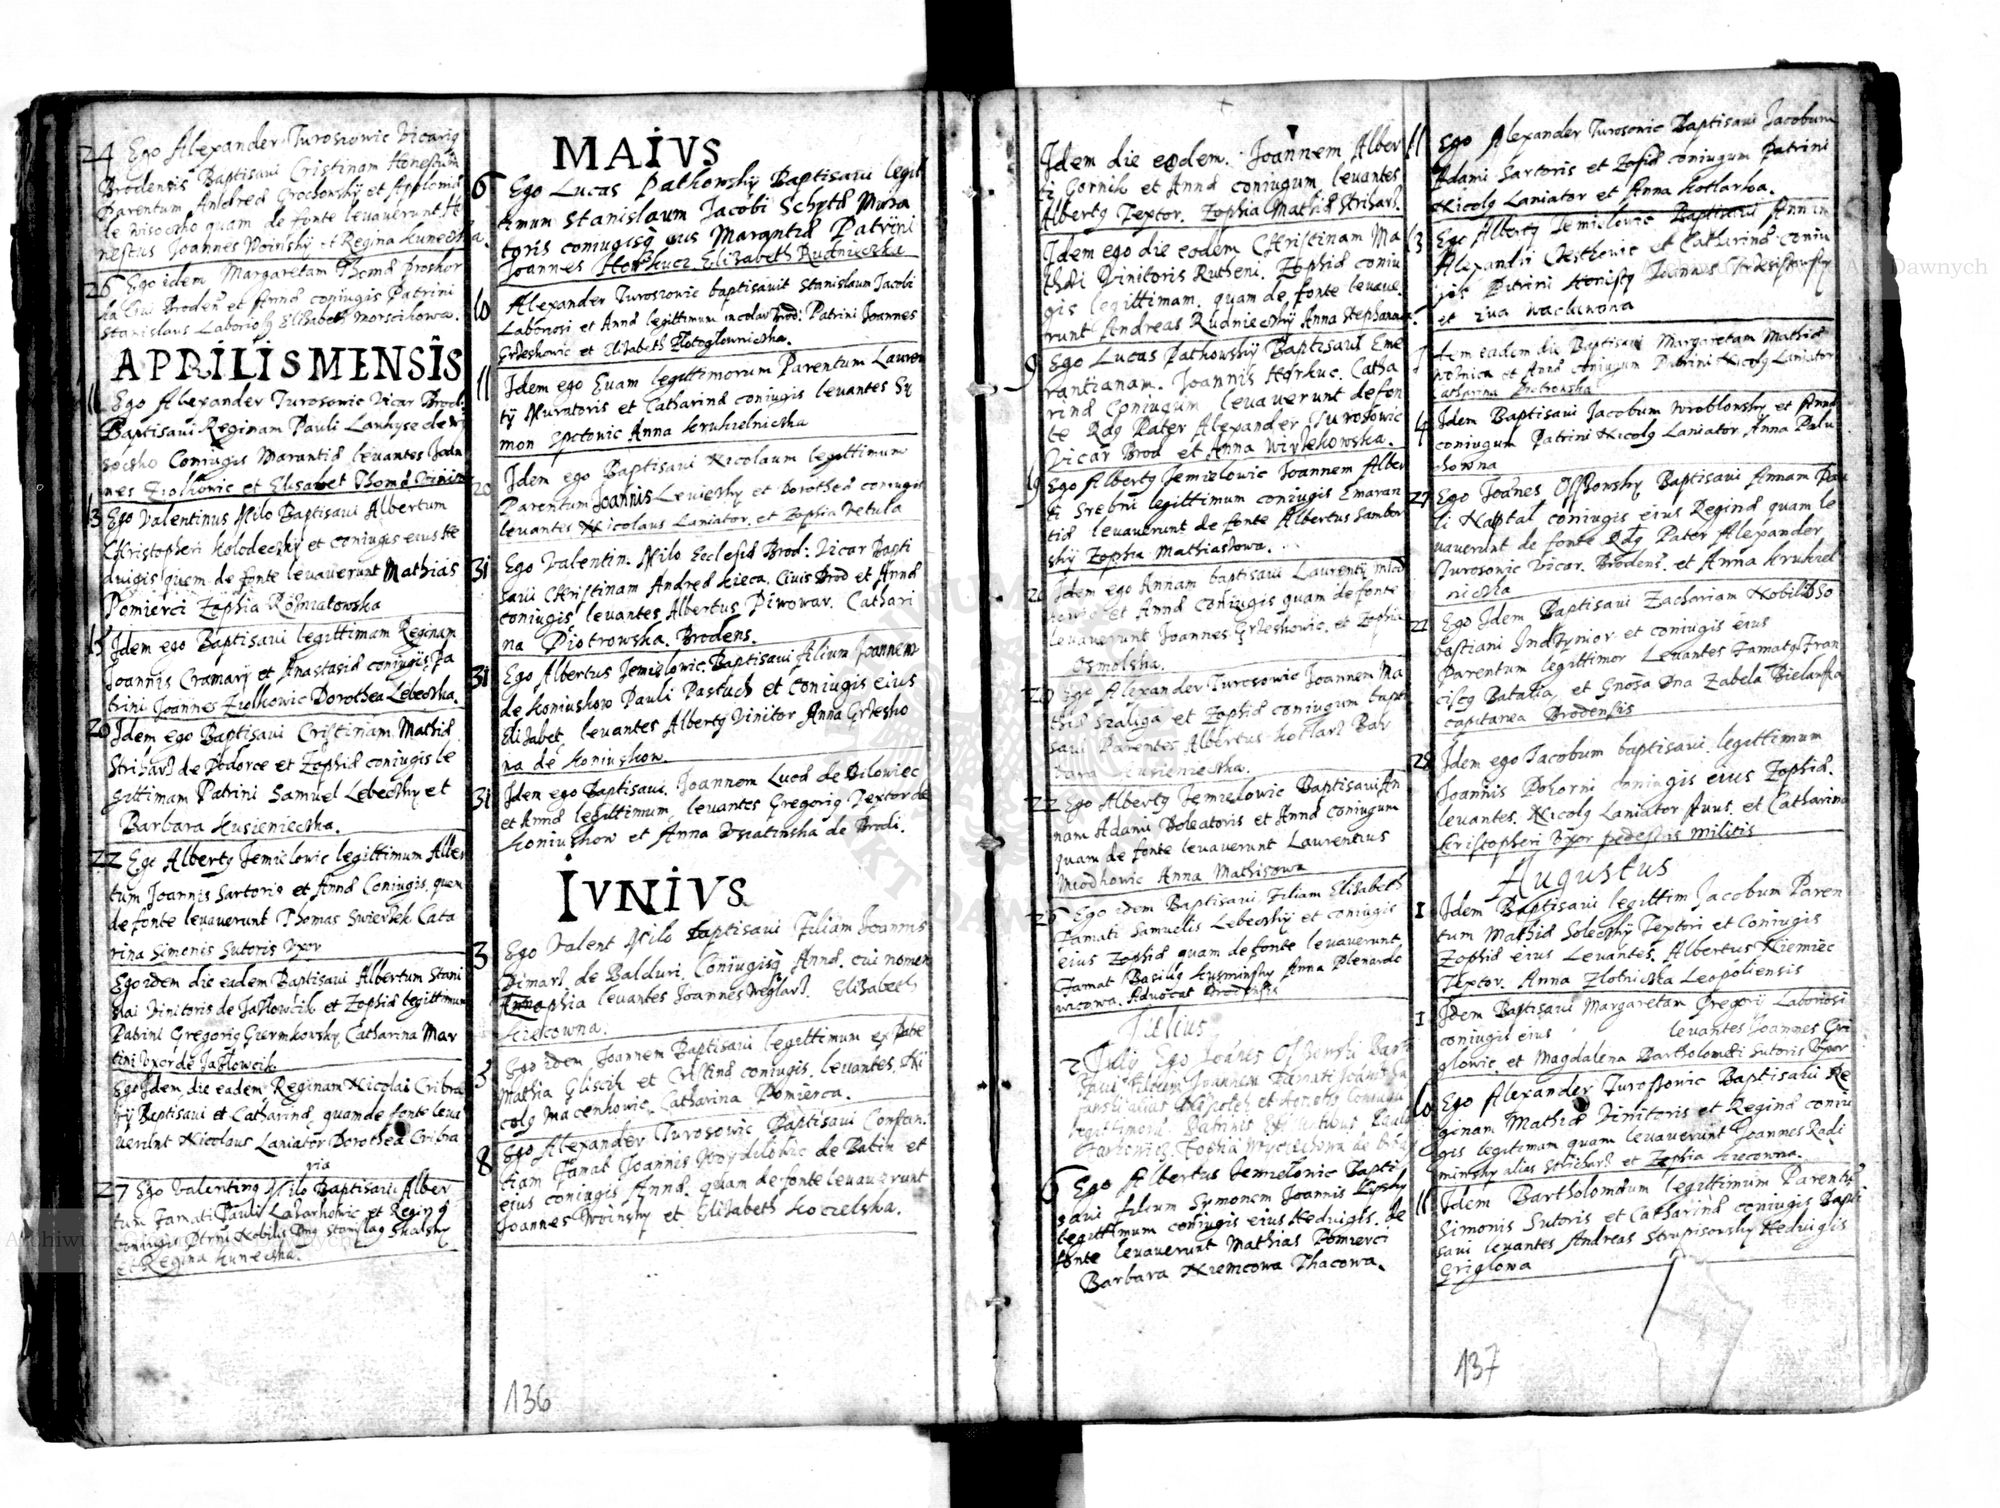 24 Ego Alexander Turosowic Vicarig
Brodensis Baptisavi Cristinam Honestum
Parentum Andreæ Grochowsky et Apploniæ
de Wisocko quam de fonte levaverunt Ho
nestus Joannes Woinsky et Regina Kunecska.
26 Ego idem Margaretam Thomæ Proskur
Civi Broden et Annæ coniugis Patrini
Stanislaus Laboriosg Elisabeth Morscihowa.
APRILIS MENSIS
11 Ego Alexander Turosowic Vicar Brod:
Baptisavi Reginam Pauli Lankyse de Wi
socsko Coniugis Marantiæ levantes Joan
nes Ziolkowic et Elisabet Thomæ Vinit
13 Ego Valentinus Milo Baptisavi Albertum
Christopheri Kolodecsky et coniugis eius He
dvigis quem de fonte levaverunt Mathias
Pomierci Zophia Rozniatowska
15 Idem ego Baptisavi legittimam Reginam
Joannis Cramary et Anastasiæ coniugis Pa
trini Joannes Ziolkowic Dorothea Lebecska.
20 Idem ego Baptisavi Cristinam Mathiæ
Striharz de Podorce et Zophiæ coniugis le
gittimam Patrini Samuel Lebecsky et
Barbara Kusieniecska.
22 Ego Albertg Jemielowic legittimum Alber
tum Joannis Sartoris et Annæ Coniugis quem
de fonte levaverunt Thomas Swierlek Cata
rina Simonis Sutoris Vxor
Ego idem die eadem Baptisavi Albertum Stani
slai Vinitoris de Jaslowcik et Zophiæ legittimum
Patrini Gregorig Germkowsky Catharina Mar
tini Vxor de Jaslowcik
Ego Idem die eadem Reginam Nicolai Cribra
rÿ Baptisavi et Catharinæ quam de fonte leva
verunt Nicolaus Laniator Dorothea Cribra
ria
27 Ego Valenting Milo Baptisavi Alber
tum Famati Pauli Lazarhowic et Reginæ
coniugis Ptrini Nobilis Dng Stanislag Skalsky
et Regina Kunecska.
MAIVS
6 Ego Lucas Pathowsky Baptisavi legit
timum Stanislaum Jacobi Schytæ Mura
toris coniugisq eius Marantiæ Patrini
Joannes Horkucz Elizabeth Rudniecska
10 Alexander Turosowic baptisavit Stanislaum Jacobi
Laboriosi et Annæ legittimum incolar Brod: Patrini Joannes
Grzeskowic et Elizabeth Zlotoglowniczka.
11 Idem ego Evam legittimorum Parentum Lauren
tÿ Muratoris et Catharinæ coniugis levantes Sy
mon Ipctowic Anna Kruhielnicska
20 Idem ego Baptisavi Nicolaum legittimum
Parentum Joannis Leviecsky et Dorotheæ coniugis
levantes Nicolaus Laniator et Zophia Vetula
31 Ego Valentin. Milo Ecclesiæ Brod: Vicar Bapti
savi Christinam Andreæ Kieca Civis Brod et Annæ
coniugis levantes Albertus Piwowar Cathari
na Piotrowska Brodens.
31 Ego Albertus Jemielowic Baptisavi filium Joannem
de Koniuskow Pauli Pastuch et coniugis eius
Elizabet levantes Albertg Vinitor Anna Grzesko
na de Koniuskow
31 Idem ego Baptisavi Joannem Lucæ de Bilowiec
et Annæ legittimum levantes Gregorig Textor de
Koniuskow et Anna Dziatinska de Brodi.
IVNIVS
3 Ego Valent Milo baptisavi filiam Joannis
Bimarz de Balduri Coniugisq Annæ cui nomen
Zophia levantes Joannes Weglarz Elizabeth
Kiekowna.
5 Ego idem Joannem Baptisavi legittimum ex Patre
Mathia Gliscik et Cristinæ coniugis levantes Ni
colg Macenkowic Catharina Pomierca.
8 Ego Alexander Turosowic Baptisavi Constan.
tiam Famat Joannis Woydilowic de Batin et
ejus coniugis Annæ quam de fonte levaverunt
Joannes Woinsky et Elizabeth Kozielska.
136
Idem die eodem Joannem Alber
tg Gornik et Annæ coniugum levantes
Albertg Textor Zophia Mathiæ Striharz
Idem ego die eodem Christinam Ma
thæi Vinitoris Rutheni Zophiæ coniu
gis legittimam quam de fonte levave.
runt Andreas Rudniecsky Anna Stephanowa.
9 Ego Lucas Pathowsky Baptisavi Eme
rantianam Joannis Horkuc Catha
rinæ Coniugum levaverunt de fon
te Rdg Pater Alexander Turosowic
Vicar Brod et Anna Wiytekowska.
19 Ego Albertg Jemielowic Joannem Alber
ti Srebni legittimum coniugis Emaran
tiæ levaverunt de fonte Albertus Sambor
sky Zophia Mathiaszowa.
20 Idem ego Annam baptisavi Laurentÿ Miod
kowic et Annæ coniugis quam de fonte
levaverunt Joannes Grzeskowic et Zophia
Osmolska.
20 Ego Alexander Turosowic Joannem Ma
thiæ Szaliga et Zophiæ coniugum bapti
savi Parentes Albertus Kotlarz Bar
bara Kusieniecska.
22 Ego Albertg Jemielowic Baptisavi An
nam Adami Doleatoris et Annæ coniugum
quam de fonte levaverunt Laurentius
Miodkowic Anna Mathisowa
26 Ego idem Baptisavi Filiam Elisabeth
Famati Samuelis Lebecsky et coniugis
eius Zophiæ quam de fonte levaverunt
Famat Basilg Kusminsky Anna Plenardo
wicowa Advocat Brodensis
Julius
2 Julÿ Ego Joanes Baptis
savi filium Joannem Famati
et Agnetis Coniugu
legittimoru Patrinis
Zophia
6 Ego Albertus Jemielowic Bapti
savi filium Symonem Joannis Lipsky
legittimum coniugis eius Hedvigis de
fonte levaverunt Mathias Pomierci
Barbara Niemcowa Thacowa.
11 Ego Alexander Turosowic Baptisavi Jacobum
Adami Sartoris et Zofiæ coniugum Patrini
Nicolg Laniator et Anna Kotlarka.
13 Ego Albertg Jemielowic Baptisavi Annam
Alexandri Cieskowic et Catharinæ coniu
gis Patrini Honestg Joannes
et Ewa Wackowona
Idem eadem die Baptisavi Margaretam Mathiæ
Woznica et Annæ coniugum Patrini Nicolg Laniator
Catharina Piotrowska
14 Idem Baptisavi Jacobum Wroblowsky et Annæ
coniugum Patrini Nicolg Laniator Anna Palu
chowna
27 Ego Joanes Ossowsky Baptisavi Annam Pau
li Kapital coniugis eius Reginæ quam le
vaverunt de fonte Rdg Pater Alexander
Turosonic Vicar. Brodens. et Anna Kruhiel
nicska
21 Ego Idem Baptisavi Zachariam Nobil Dso
bastiani Indzynior et coniugis eius
Parentum legittimor Levantes Famatg Fran
ciscg Batalia et Gnosa Dna Zabela Bielanska
capitanea Brodensis
28 Idem ego Jacobum baptisavi legittimum
Joannis Pokorni coniugis eius Zophiæ.
levantes Nicolg Laniator Avus et Catharina
Cristopheri Vxor pedestris militis
Augustus
1 Idem Baptisavi legittim Jacobum Paren
tum Mathiæ Solecsky Textori et Coniugis
Zophiæ eius Levantes Albertus Niemiec
Textor Anna Zlotnicska Leopoliensis
1 Idem Baptisavi Margaretam Gregorÿ Laboriosi
coniugis eius levantes Joannes Gri
glowic et Magdalena Bartholomæi Sutoris Vxor
10 Ego Alexander Turossonic Baptisavi Re
ginam Mathiæ Vinitoris et Reginæ coniu
gis legitimam quam levaverunt Joannes Radi
minsky alias Striharz et Zophia Kiecowna.
11 Idem Bartholomæum legittimum Parentu
Simonis Sutoris et Catharinæ coniugis Bapti
savi levantes Andreas Strupisowsky Hedviglis
Griglowa
137